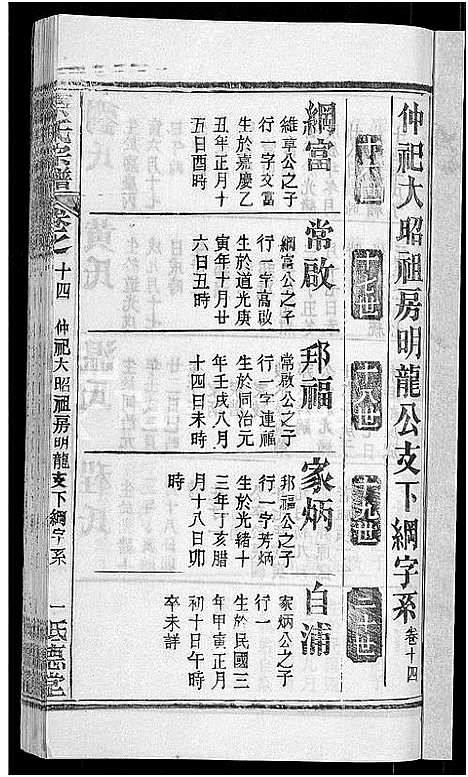 仲祀大昭祖房明龍公支下綱字系 卷十四
十六世
十七世
十八世
十九世
二十世
綱富
維草公之子
行一字交富
生於嘉慶乙
丑年正月十
五日酉時
常啟
綱富公之子
行一字高啟
生於道光庚
寅年十月廿
六日丑時
邦福
常啟公之子
行一字連福
生於同治元
年壬戌八月
十四日未時
家炳
邦福公之子
行一字芳炳
生於光緒十
三年丁亥腊
月十八日卯
時
自浦
家炳公之子
行一
生於民國三
年甲寅正月
初十日午時
卒未詳
氏宗譜 卷之十四 仲祀大昭祖房明龍支下綱字系 一 氏惠堂